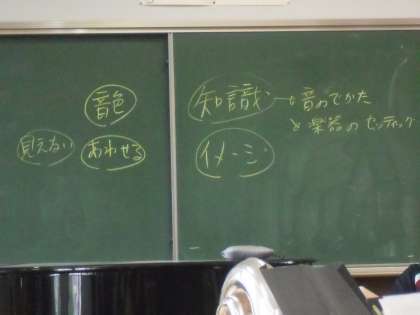 音色
見えない
あわせる
知識→音のでかた
と楽器のセッティング
イメージ